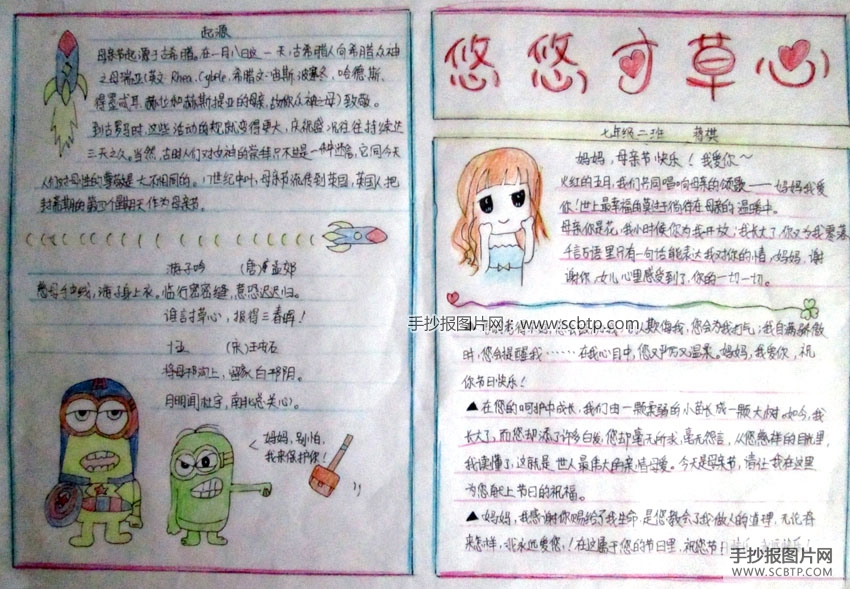 起源
母亲节起源于古希腊,在一月八日这一天,古希腊人向希腊众神
之母瑞亚(英文Rhea,Cybele,希腊文,宙斯,波塞冬,哈德斯、
得墨忒耳、赫拉和赫斯提亚的母亲,故称众神之母)致敬。
到古罗马时,这些活动的规就变得更大,庆祝盛况往往持续达
三天之久。当然,古时人们对女神的崇拜只不过是一种迷信,它同今天
人们对母性的尊敬是大不相同的。17世纪中叶,母亲节流传到英国,英国人把
封斋期的第四个星期天作为母亲节。
游子吟 (唐)孟郊
慈母手中线,游子身上衣。临行密密缝,意恐迟迟归。
谁言寸草心,报得三春晖!
十五 (宋)王安石
将母邗沟上,留家白邗阴。
月明闻杜宇,南北总关心。
妈妈,别怕,
我来保护你!
悠悠寸草心
七年级二班
妈妈,母亲节快乐!我爱你~
火红的五月,我们共同唱响母亲的颂歌——妈妈我爱
你!世上最幸福的莫过于倘佯在母亲的温暖中。
母亲你是花,我小时候你为我开放;我长大了,你又为我零落
千言万语里只有一句话能表达我对你的情,妈妈,谢
谢你,女儿心里感受到了,你的一切一切。
手抄报图片网 www.scbtp.com
人欺侮我,您会为我打气;我自满骄傲
时,您会提醒我……在我心目中,您又严厉又温柔。妈妈,我爱你,祝
你节日快乐!
▲在您的呵护中成长,我们由一颗柔弱的小苗长成一颗大树。如今,我
长大了,而您却添了许多白发,您却毫无所求,毫无怨言,从您慈祥的目光里,
我读懂了,这就是世人最伟大的亲情母爱。今天是母亲节,请让我在这里
为您献上节日的祝福。
▲妈妈,我感谢你赐给了我生命,是您教会了我做人的道理,无论将
来怎样,我永远爱您!在这属于您的节日里,祝您节日
手抄报图片网
WWW.SCBTP.COM